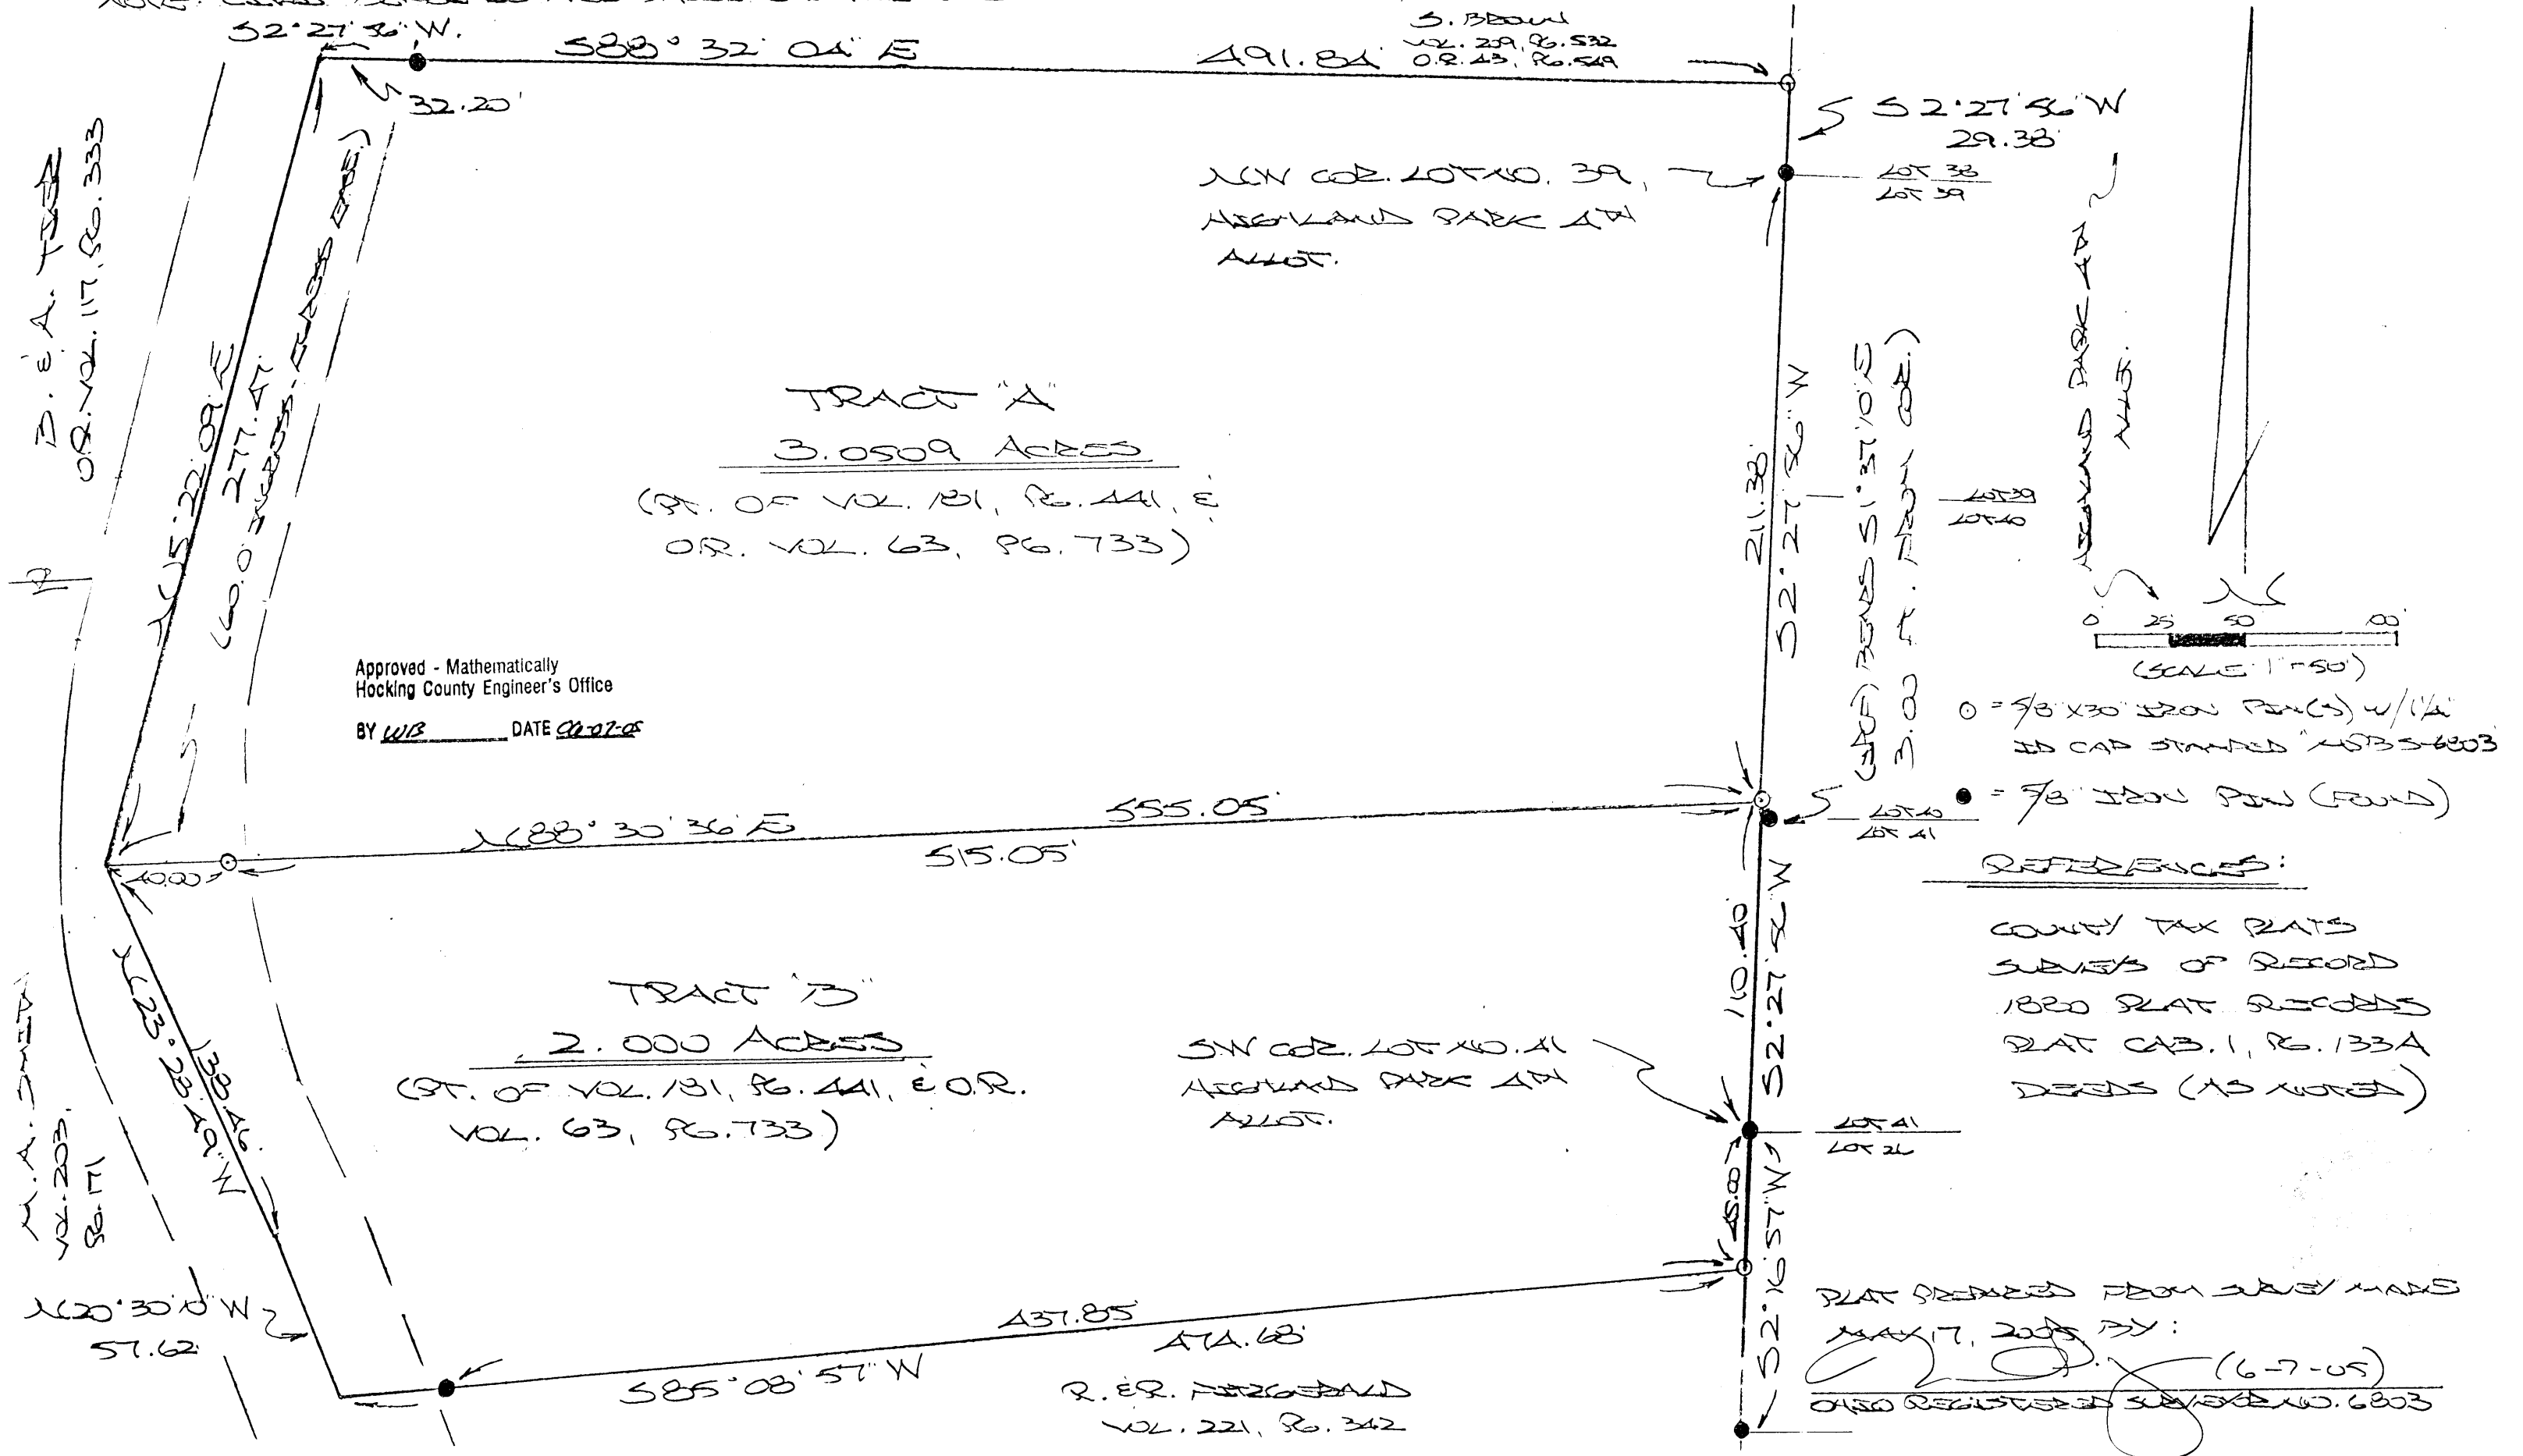 S2°27'56" W.
S88° 32' 04" E
491.84'
S. BROWN
VOL. 209, PG. 532
O.R. 43, PG. 549
32.20'
S 2°27'56" W
29.38'
NW COR. LOT NO. 39,
HIGHLAND PARK 4TH
ALLOT.
LOT 38
LOT 39
O.R. VOL. 117, PG. 333
N 15°22'09" E
277.47'
(60.0' INGRESS-EGRESS EASE.)
TRACT "A"
3.0509 ACRES
(PT. OF VOL. 181, PG. 441, &
O.R. VOL. 63, PG. 733)
211.38'
S2°27'56" W
BEARS S1°37'10"E
3.00 FT. FROM COR.)
LOT 39
LOT 40
HIGHLAND PARK 4TH
ALLOT.
N
0 25 50 100'
(SCALE 1"=50')
Approved - Mathematically
Hocking County Engineer's Office
BY WB DATE 06-07-05
= 5/8"X30" IRON PIN(S) W/1 1/4"
ID CAP STAMPED S-6803
= 5/8" IRON PIN (FOUND)
N 88° 30' 36" E
555.05'
515.05'
40.00'
LOT 40
LOT 41
REFERENCES:
COUNTY TAX PLATS
SURVEYS OF RECORD
1880 PLAT RECORDS
PLAT CAB. 1, PG. 133A
DEEDS (AS NOTED)
110.40'
S2°27'56" W
TRACT "B"
2.000 ACRES
(PT. OF VOL. 181, PG. 441, & O.R.
VOL. 63, PG. 733)
SW COR. LOT NO. 41
HIGHLAND PARK 4TH
ALLOT.
LOT 41
LOT 26
M.A. SMITH
VOL. 203,
PG. 171
138.46'
N 23°28'49" W
N 20°30'10" W
57.62'
45.00'
S2°16'57" W
437.85'
474.68'
S85°08'57" W
R. & R. FITZGERALD
VOL. 221, PG. 342
PLAT PREPARED FROM SURVEY MADE
MAY 17, 2005, BY:
(6-7-05)
OHIO REGISTERED SURVEYOR NO. 6803